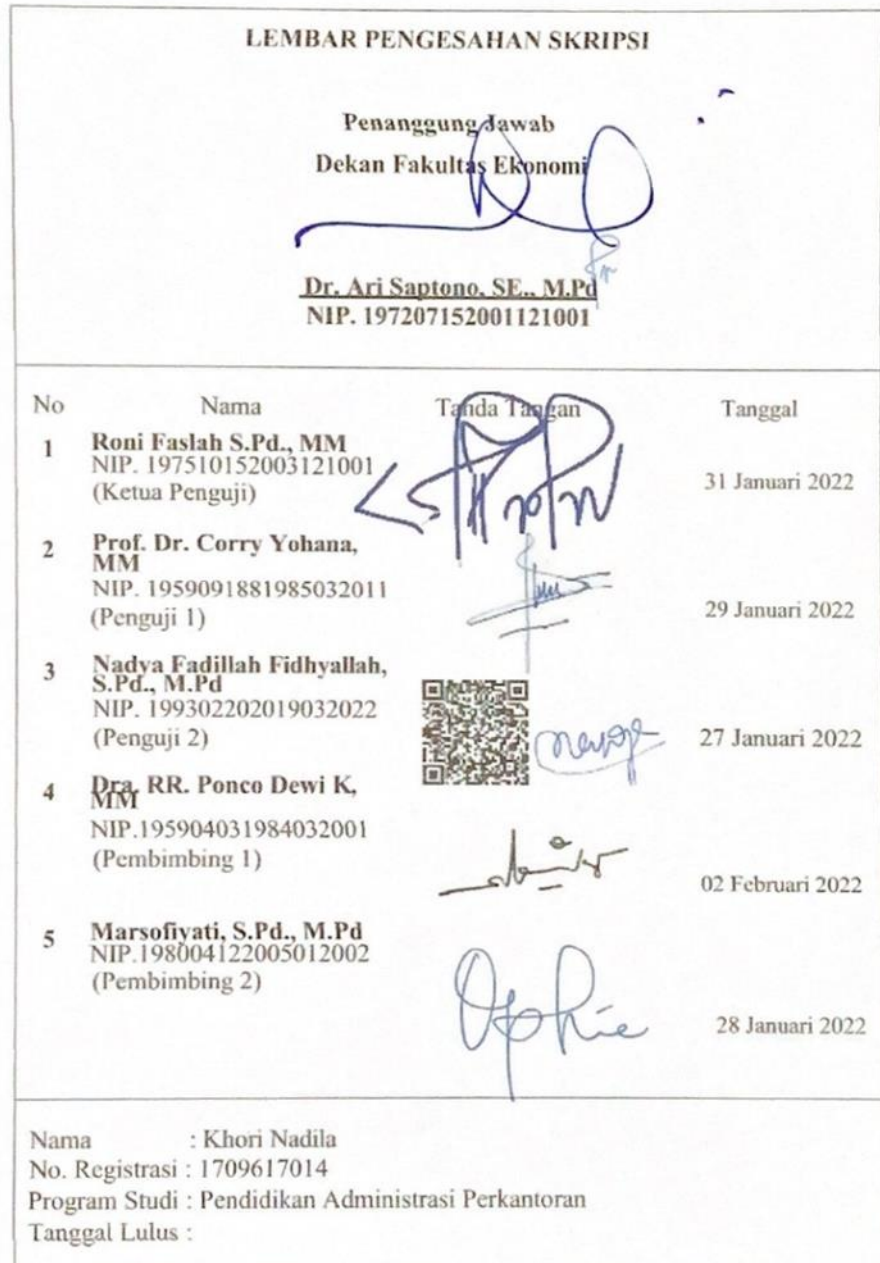 LEMBAR PENGESAHAN SKRIPSI
Penanggung Jawab
Dekan Fakultas Ekonomi
Dr. Ari Saptono, SE., M.Pd
NIP. 197207152001121001
No Nama Tanda Tangan Tanggal
1 Roni Faslah S.Pd., MM
NIP. 197510152003121001
(Ketua Penguji)
31 Januari 2022
2 Prof. Dr. Corry Yohana,
MM
NIP. 1959091881985032011
(Penguji 1)
29 Januari 2022
3 Nadya Fadillah Fidhyallah,
S.Pd., M.Pd
NIP. 199302202019032022
(Penguji 2)
27 Januari 2022
4 Dra. RR. Ponco Dewi K,
MM
NIP.195904031984032001
(Pembimbing 1)
02 Februari 2022
5 Marsofiyati, S.Pd., M.Pd
NIP.198004122005012002
(Pembimbing 2)
28 Januari 2022
Nama : Khori Nadila
No. Registrasi : 1709617014
Program Studi : Pendidikan Administrasi Perkantoran
Tanggal Lulus :